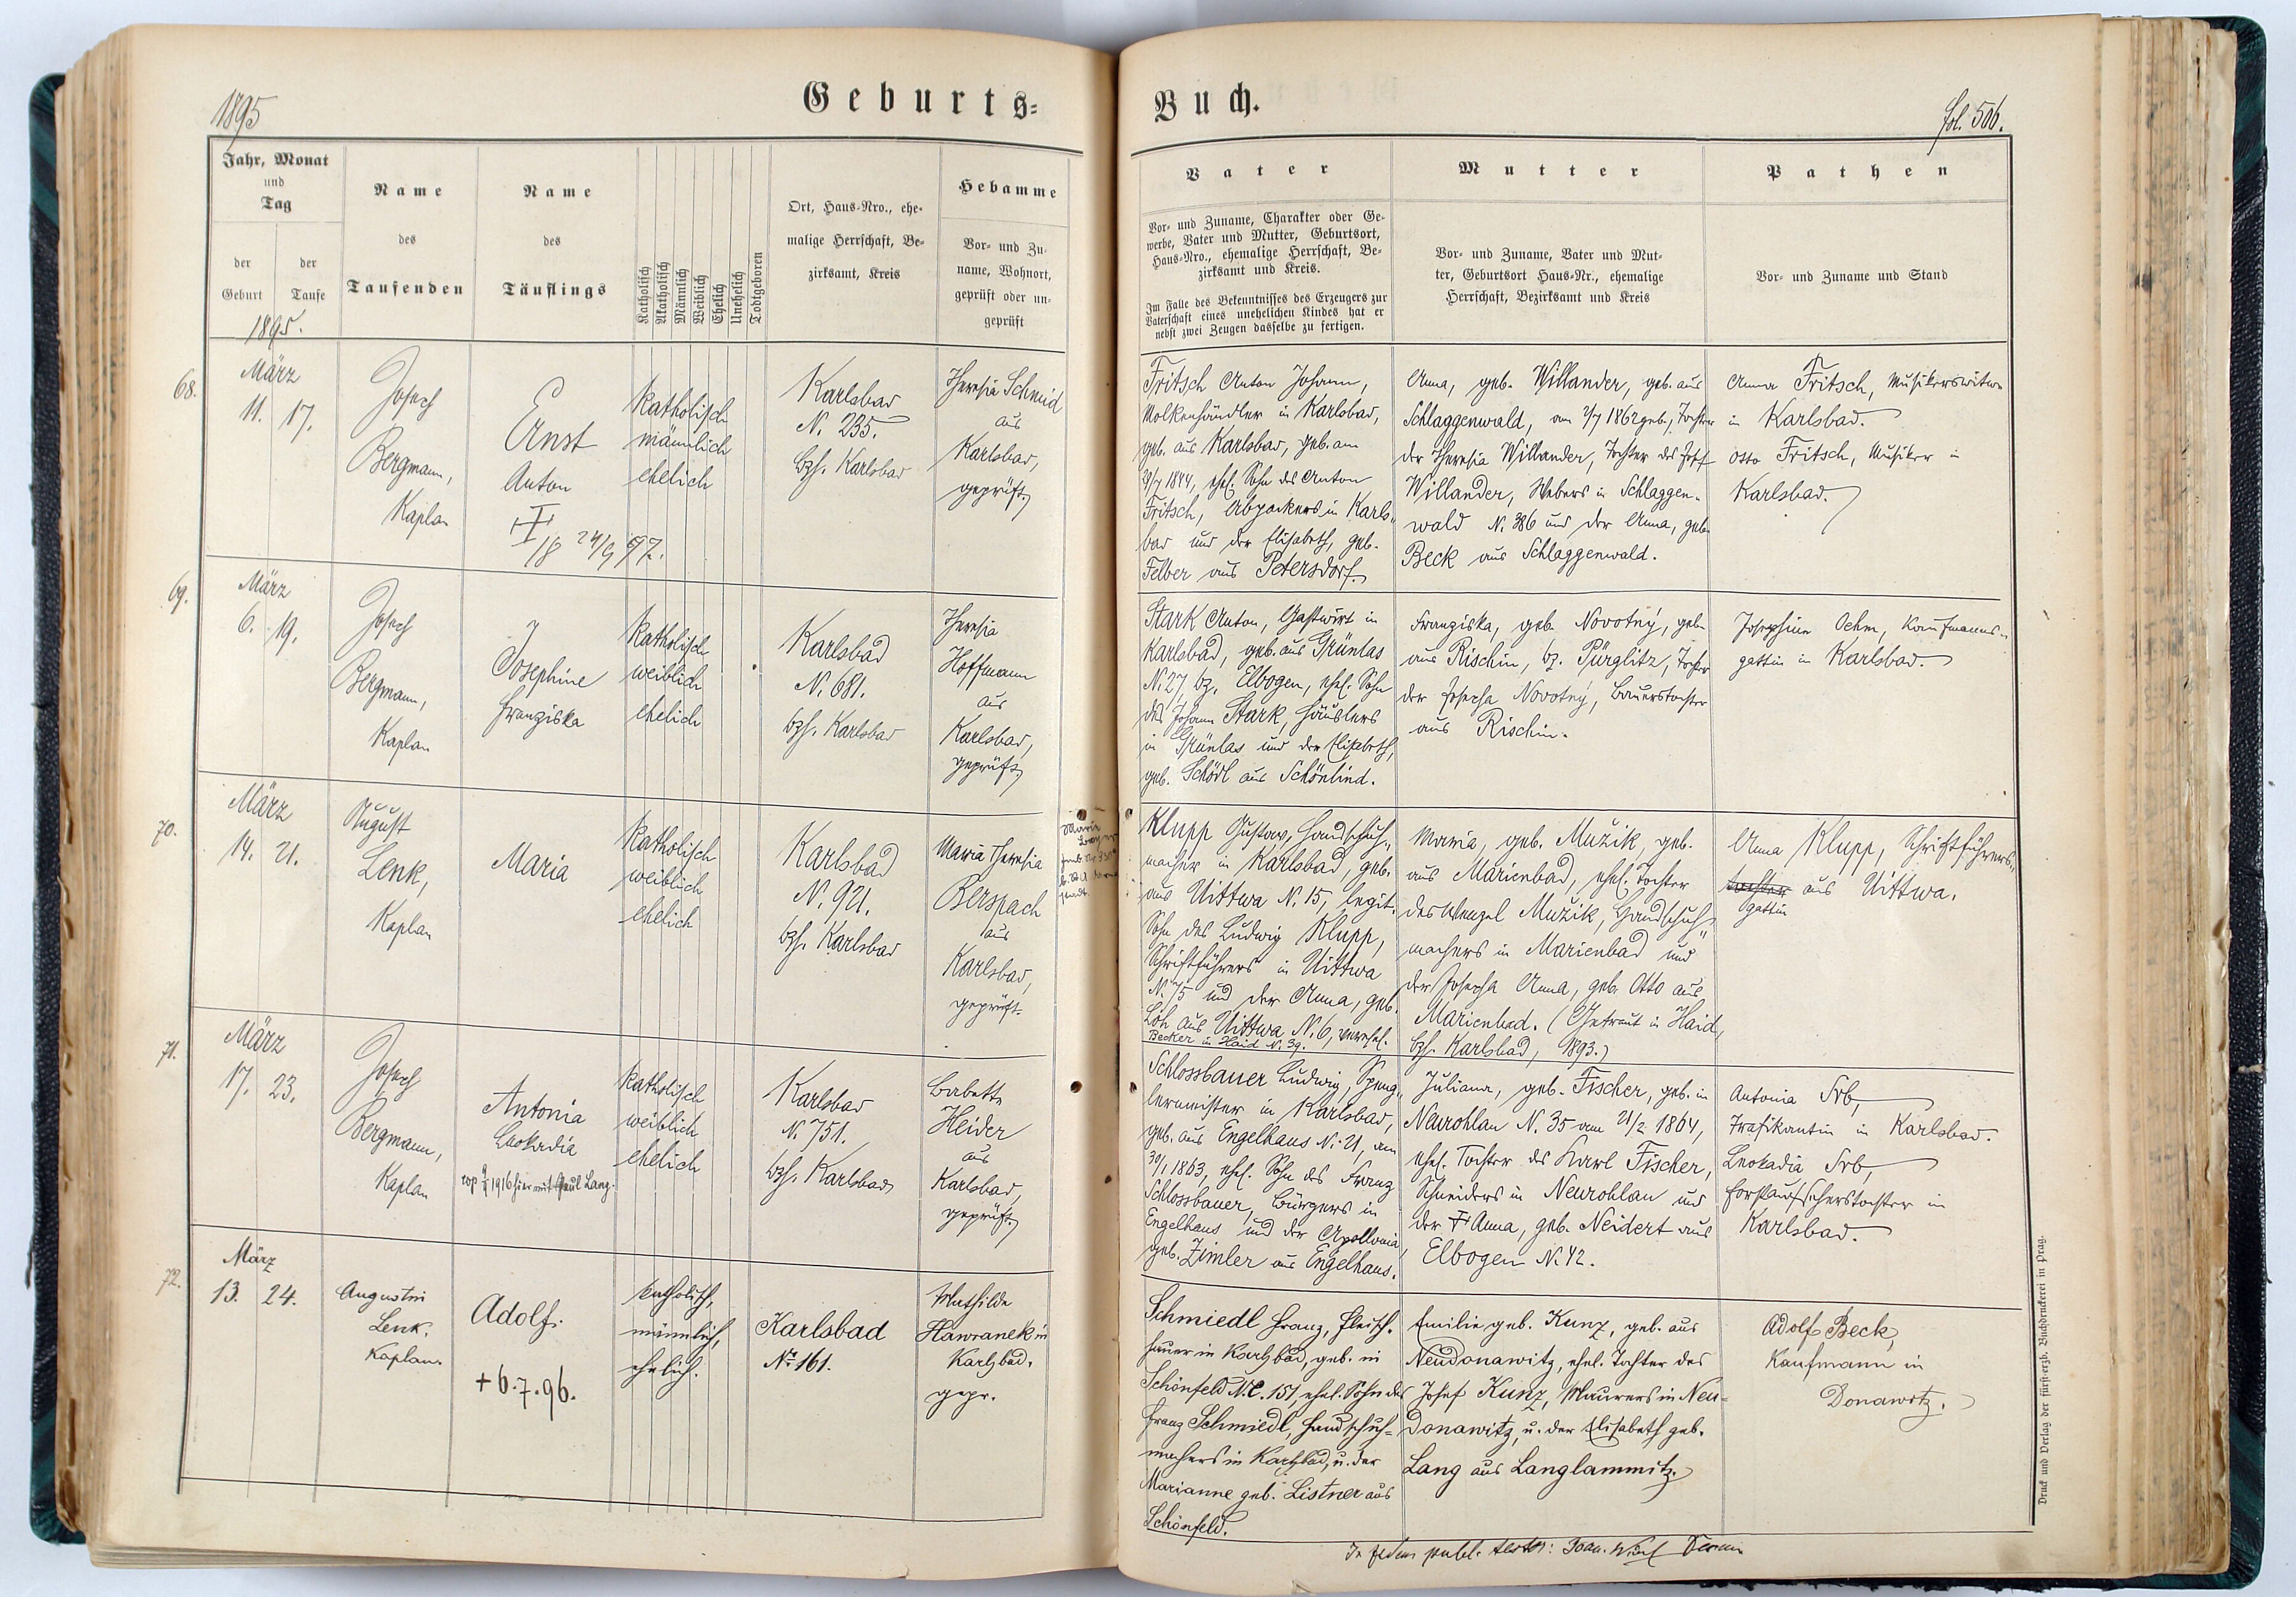 1895
Geburts=
Buch.
fol. 506.
Jahr, Monat
und
Tag
der
Geburt
der
Taufe
1895.
Name
des
Taufenden
Name
des
Täuflings
Katholisch
Akatholisch
Männlich
Weiblich
Ehelich
Unehelich
Todtgeboren
Ort, Haus-Nro., ehe-
malige Herrschaft, Be-
zirksamt, Kreis
Hebamme
Vor- und Zu-
name, Wohnort,
geprüft oder un-
geprüft
Vater
Vor- und Zuname, Charakter oder Ge-
werbe, Vater und Mutter, Geburtsort,
Haus-Nro., ehemalige Herrschaft, Be-
zirksamt und Kreis.
Im Falle des Bekenntnisses des Erzeugers zur
Vaterschaft eines unehelichen Kindes hat er
nebst zwei Zeugen dasselbe zu fertigen.
Mutter
Vor- und Zuname, Vater und Mut-
ter, Geburtsort Haus-Nr., ehemalige
Herrschaft, Bezirksamt und Kreis
Pathen
Vor- und Zuname und Stand
68.
März
11. 17.
Josef
Bergmann,
Kaplan
Ernst
Anton
18 24/9 97.
katholisch
männlich
ehelich
Karlsbad
N. 235.
bzh. Karlsbad
Theresia Schmid
aus
Karlsbad,
geprüft
Fritsch Anton Johann,
Molkenhändler in Karlsbad,
geb. aus Karlsbad, geb. am
1844, ehel. Sohn des Anton
Fritsch, Abpackers in Karls-
bad und der Elisabeth, geb.
Felber aus Petersdorf.
Anna, geb. Willander, geb. aus
Schlaggenwald, am 2/7 1862 geb., Tochter
der Theresia Willander, Tochter des Josef
Willander, Webers in Schlaggen-
wald N. 386 und der Anna, geb.
Beck aus Schlaggenwald.
Anna Fritsch, Musikerswitwe
in Karlsbad.
Otto Fritsch, Musiker in
Karlsbad.
69.
März
6. 19.
Josef
Bergmann,
Kaplan
Josephine
Franziska
katholisch
weiblich
ehelich
Karlsbad
N. 681.
bzh. Karlsbad
Theresia
Hoffmann
aus
Karlsbad,
geprüft
Stark Anton, Gastwirt in
Karlsbad, geb. aus Grünlas
N. 27, bz. Elbogen, ehel. Sohn
des Johann Stark, Häuslers
in Grünlas und der Elisabeth,
geb. Schödl aus Schönlind.
Franziska, geb. Novotný, geb.
aus Rischin, bz. Pürglitz, Tochter
der Josefa Novotný, Bauerstochter
aus Rischin.
Josephine Oehm, Kaufmanns-
gattin in Karlsbad.
70.
März
14. 21.
August
Lenk,
Kaplan
Maria
katholisch
weiblich
ehelich
Karlsbad
N. 921.
bzh. Karlsbad
Maria Theresia
Berspach
aus
Karlsbad,
geprüft.
Maria
Klupp Gustav, Handschuh-
macher in Karlsbad, geb.
aus Uittwa N. 15, legit.
Sohn des Ludwig Klupp,
Schriftführers in Uittwa
N. 75 und der Anna, geb.
Löh aus Uittwa N. 6, verehel.
Becker in Haid N. 39.
Maria, geb. Mužik, geb.
aus Marienbad, ehel. Tochter
des Wenzel Mužik, Handschuh-
machers in Marienbad und
der Josefa Anna, geb. Otto aus
Marienbad. (Getraut in Haid,
bzh. Karlsbad, 1893.)
Anna Klupp, Schriftführers-
tochter aus Uittwa.
gattin
71.
März
17. 23.
Josef
Bergmann,
Kaplan
Antonia
Leokadia
cop 1916 hier mit Paul Lang.
katholisch
weiblich
ehelich
Karlsbad
N. 751.
bzh. Karlsbad
Babette
Heider
aus
Karlsbad,
geprüft
Schlossbauer Ludwig, Speng-
lermeister in Karlsbad,
geb. aus Engelhaus N. 21, am
30/1 1863, ehel. Sohn des Franz
Schlossbauer, Bürgers in
Engelhaus und der Apollonia,
geb. Zimler aus Engelhaus.
Juliana, geb. Fischer, geb. in
Neurohlau N. 35 am 21/2 1864,
ehel. Tochter des Karl Fischer,
Schneiders in Neurohlau und
der Anna, geb. Neidert aus
Elbogen N. 42.
Antonia Srb,
Trafikantin in Karlsbad.
Leokadia Srb,
Forstaufseherstochter in
Karlsbad.
72.
März
13. 24.
Augustin
Lenk.
Kaplan.
Adolf.
+ 6.7.96.
katholisch,
männlich,
ehelich.
Karlsbad
No 161.
Mathilde
Hawranek in
Karlsbad.
gepr.
Schmiedl Franz, Fleisch-
hauer in Karlsbad, geb. in
Schönfeld N.C. 151, ehel. Sohn des
Franz Schmiedl, Handschuh-
machers in Karlsbad, u. der
Marianne geb. Listner aus
Schönfeld.
Emilie geb. Kunz, geb. aus
Neudonawitz, ehel. Tochter des
Josef Kunz, Maurers in Neu-
donawitz, u. der Elisabeth geb.
Lang aus Langlammitz.
Adolf Beck,
Kaufmann in
Donawitz.
In fidem publ. testor:
Druck und Verlag der fürst-erzb. Buchdruckerei in Prag.